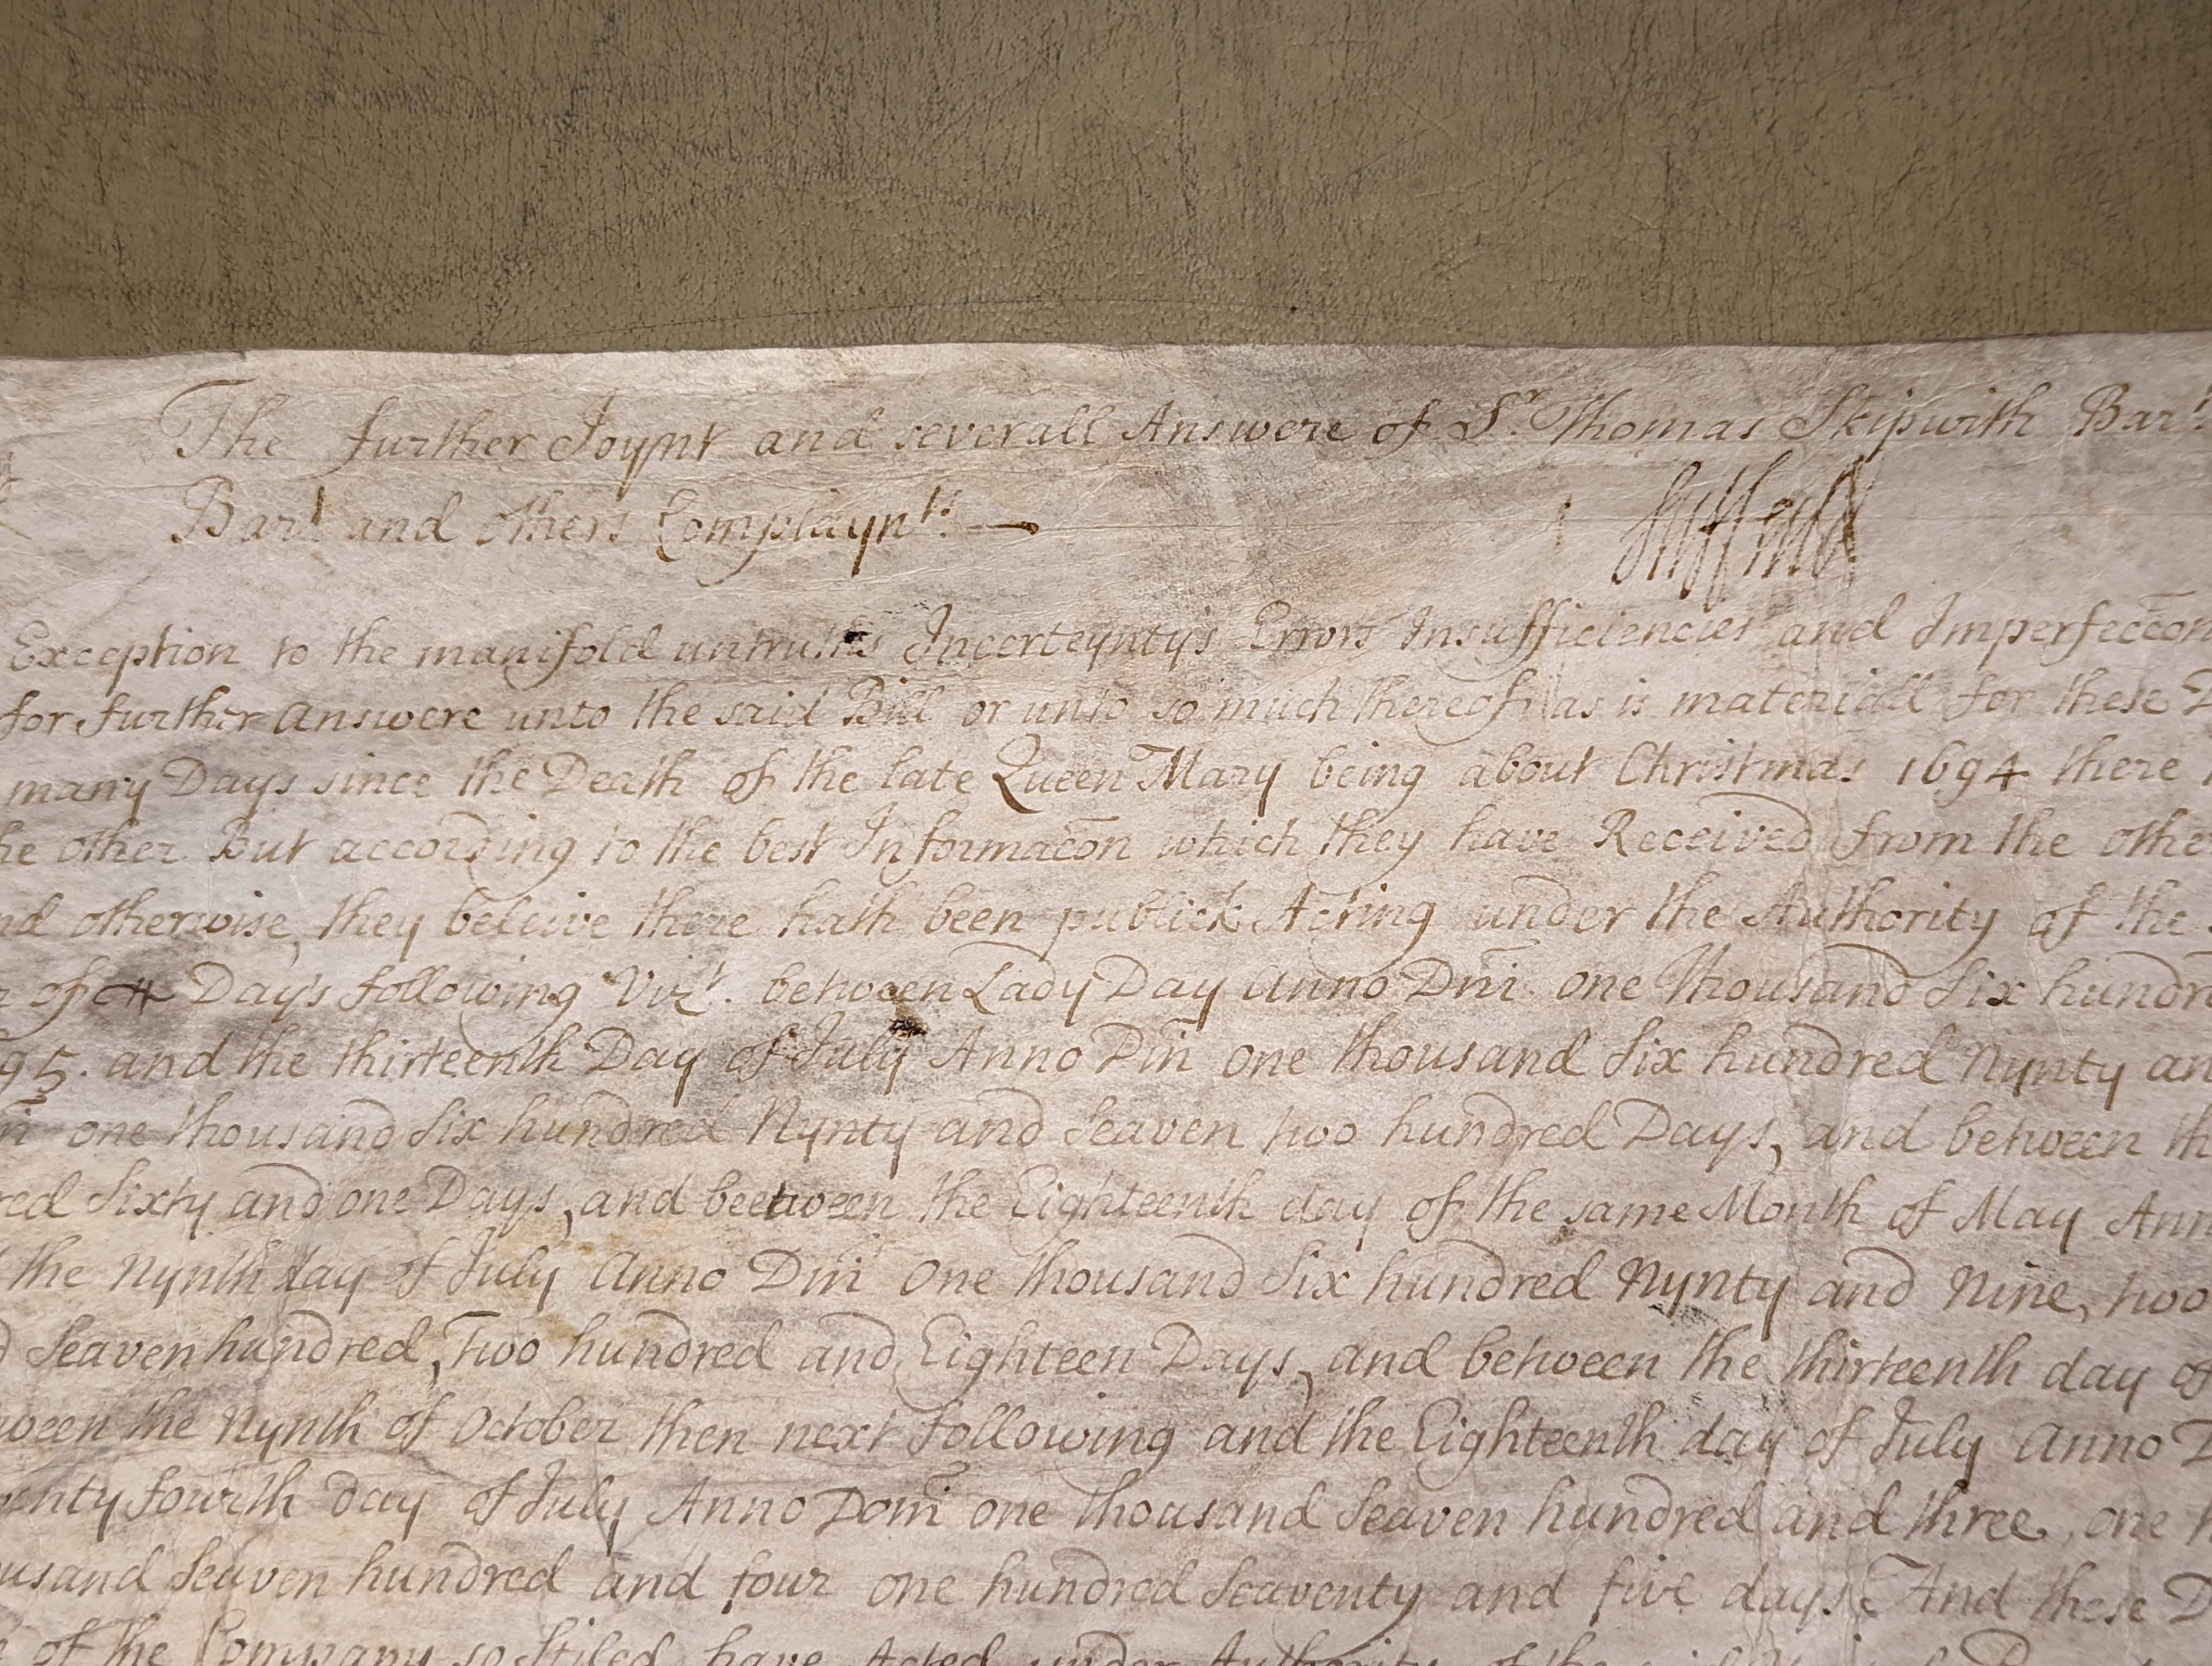 The further Joynt and severall Answere of Sr. Thomas Skipwith Bart.
Bart. and others Complaynts.
Exception to the manifold untruths Incerteynty's Errors Insufficiencies and Imperfeccon
for further answere unto the said Bill or unto so much thereof as is materiall for these
many Days since the Death of the late Queen Mary being about Christmas 1694 there
he other But according to the best Informacon which they have Received from the othe
nd otherwise, they beleive there hath been publick Acting under the Authority of the
of Days following Vizt. between Lady Day Anno Dni one thousand Six hundr
95. and the thirteenth Day of July Anno Dni one thousand Six hundred Nynty an
one thousand Six hundred Nynty and Seaven two hundred Days, and between th
red Sixty and one Days, and beetween the Eighteenth day of the same Month of May Ann
the Nynth day of July Anno Dni One thousand Six hundred Nynty and Nine, two
Seaven hundred, Two hundred and Eighteen Days, and between the thirteenth day of
ween the Nynth of October then next following and the Eighteenth day of July Anno
enty fourth day of July Anno Domi one thousand Seaven hundred and three, one
usand Seaven hundred and four one hundred Seaventy and five days. And these
of the Company so Stiled have Acted under Authority of the